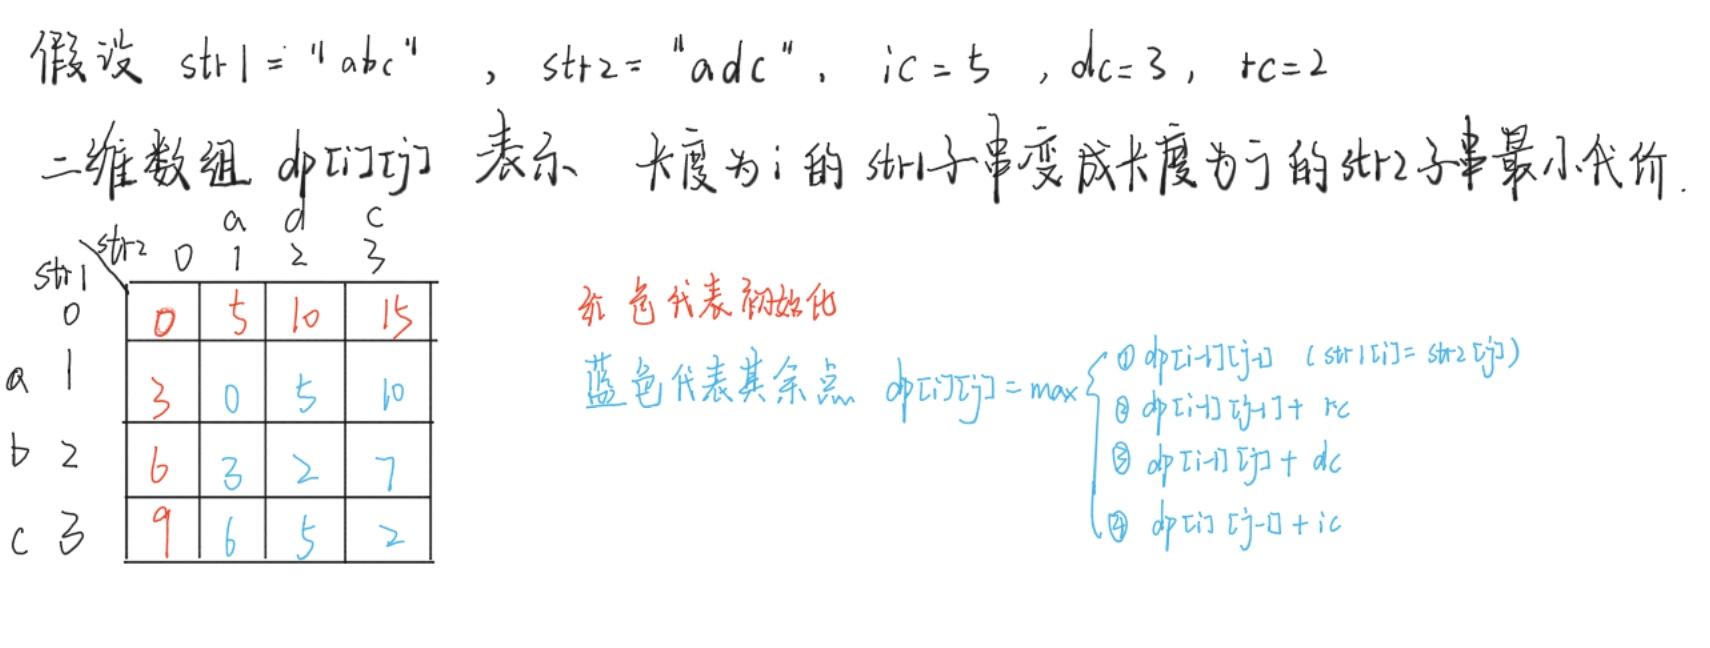 假设 str1 = "abc" , str2 = "adc", ic = 5 , dc = 3, rc = 2
二维数组 dp[i][j] 表示 长度为i的str1子串变成长度为j的str2子串最小代价.
a d c
str2 0 1 2 3
str1
0 0 5 10 15
a 1 3 0 5 10
b 2 6 3 2 7
c 3 9 6 5 2
红色代表初始化
蓝色代表其余点 dp[i][j] = max
① dp[i-1][j-1] (str1[i] = str2[j])
② dp[i-1][j-1] + rc
③ dp[i-1][j] + dc
④ dp[i][j-1] + ic